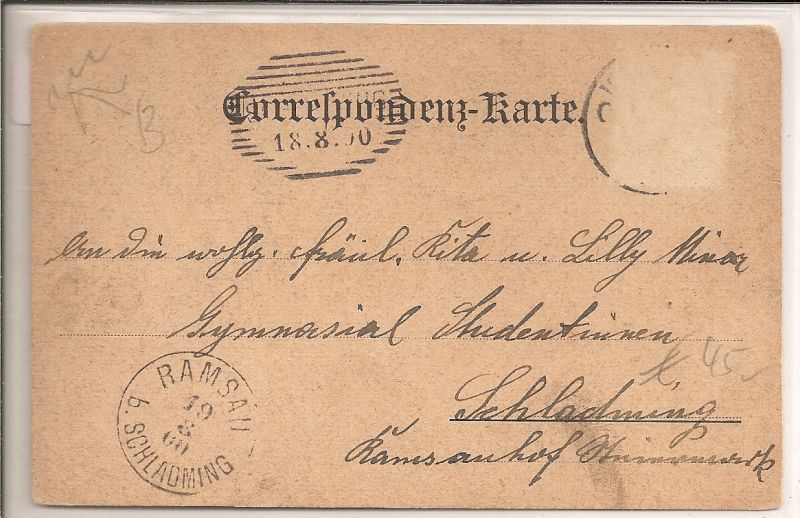 Correspondenz-Karte.
18.8.00
An die wohlg. Fräul. Rita u. Lilly Minor
Gymnasial Studentinnen
Schladming
Ramsauhof Steiermark
RAMSAU
19
8
00
b. SCHLADMING
B
45.-